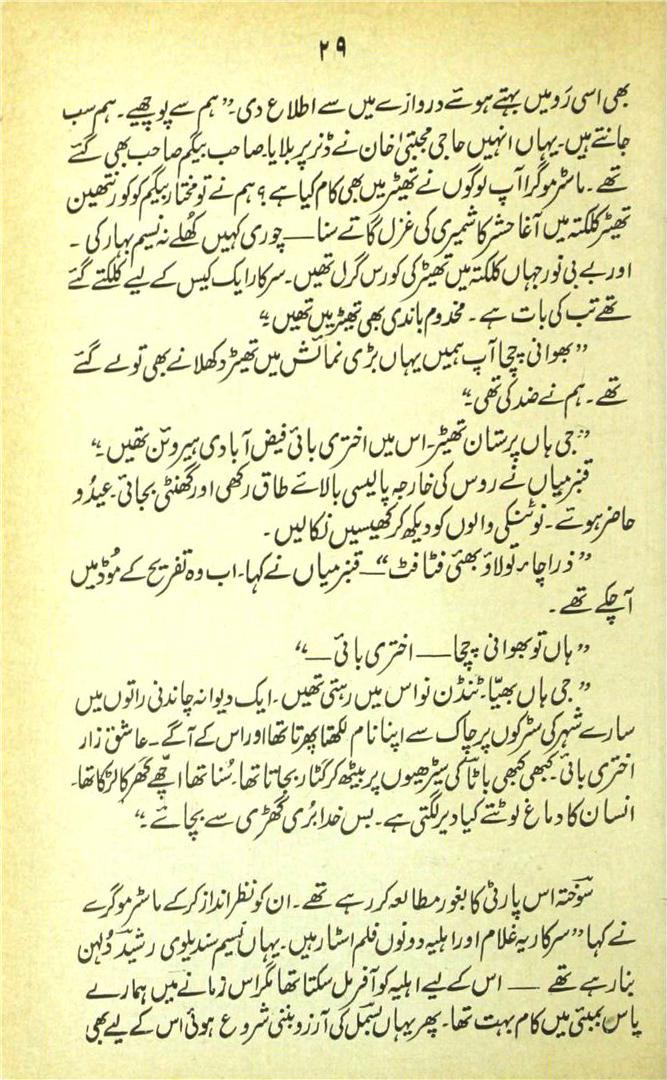 ۲۹
بھی اسی رَو میں بہتے ہوئے دروازے میں سے اطلاع دی۔ ”ہم سے پوچھیے۔ ہم سب
جانتے ہیں۔ یہاں انہیں حاجی مجتبیٰ خان نے ڈنر پر بلایا۔ صاحب بیگم صاحب بھی گئے
تھے۔ ماسٹر موگرا آپ لوگوں نے تھیٹر میں بھی کام کیا ہے؟ ہم نے تو مختار بیگم کو کورنتھین
تھیٹر کلکتہ میں آغا حشر کاشمیری کی غزل گاتے سنا — چوری کہیں کھُلے نہ نسیم بہار کی۔
اور بے بی نور جہاں کلکتہ میں تھیٹر کی کورس گرل تھیں۔ سرکار ایک کیس کے لیے کلکتے گئے
تھے تب کی بات ہے۔ مخدوم باندی بھی تھیٹر میں تھیں۔“
”بھوانی چچا آپ ہمیں یہاں بڑی نمائش میں تھیٹر دکھلانے بھی تو لے گئے
تھے۔ ہم نے ضد کی تھی۔“
”جی ہاں پرستان تھیٹر۔ اس میں اختری بائی فیض آبادی ہیروئن تھیں۔“
قنبر میاں نے روس کی خارجہ پالیسی بالائے طاق رکھی اور گھنٹی بجائی۔ عیدُو
حاضر ہوئے۔ نوٹنکی والوں کو دیکھ کر کھیسیں نکالیں۔
”ذرا چاء تو لاؤ بھئی فٹافٹ“ — قنبر میاں نے کہا۔ اب وہ تفریح کے مُوڈ میں
آ چکے تھے۔
”ہاں تو بھوانی چچا — اختری بائی —“
”جی ہاں بھیّا۔ ٹنڈن نواس میں رہتی تھیں۔ ایک دیوانہ چاندنی راتوں میں
سارے شہر کی سڑکوں پر چاک سے اپنا نام لکھتا پھرتا تھا اور اس کے آگے۔ عاشق زار
اختری بائی۔ کبھی کبھی باٹا کی سیڑھیوں پر بیٹھ کر گٹار بجاتا تھا۔ سُنا تھا اچھّے گھر کا لڑکا تھا۔
انسان کا دماغ لوٹتے کیا دیر لگتی ہے۔ بس خدا بُری گھڑی سے بچائے۔“
سوختہ اس پارٹی کا بغور مطالعہ کر رہے تھے۔ ان کو نظر انداز کر کے ماسٹر موگرے
نے کہا ”سرکار یہ غلام اور اہلیہ دونوں فلم اسٹار ہیں۔ یہاں نسیم سندیلوی رشید دُلہن
بنا رہے تھے — اس کے لیے اہلیہ کو آفر مل سکتا تھا مگر اس زمانے میں ہمارے
پاس بمبئی میں کام بہت تھا۔ پھر یہاں بسمل کی آرزو بننی شروع ہوئی اس کے لیے بھی